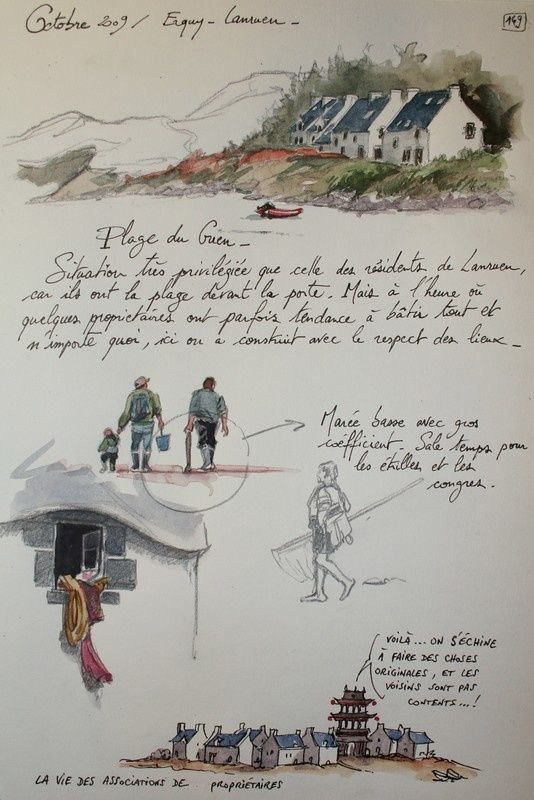 Octobre 2009 / Erquy - Lanruen -
149
Plage du Guen -
Situation très privilégiée que celle des résidents de Lanruen,
car ils ont la plage devant la porte. Mais à l'heure où
quelques propriétaires ont parfois tendance à bâtir tout et
n'importe quoi, ici on a construit avec le respect des lieux -
Marée basse avec gros
coefficient. Sale temps pour
les étrilles et les
congres.
VOILÀ... ON S'ÉCHINE
À FAIRE DES CHOSES
ORIGINALES, ET LES
VOISINS SONT PAS
CONTENTS...!
LA VIE DES ASSOCIATIONS DE PROPRIÉTAIRES